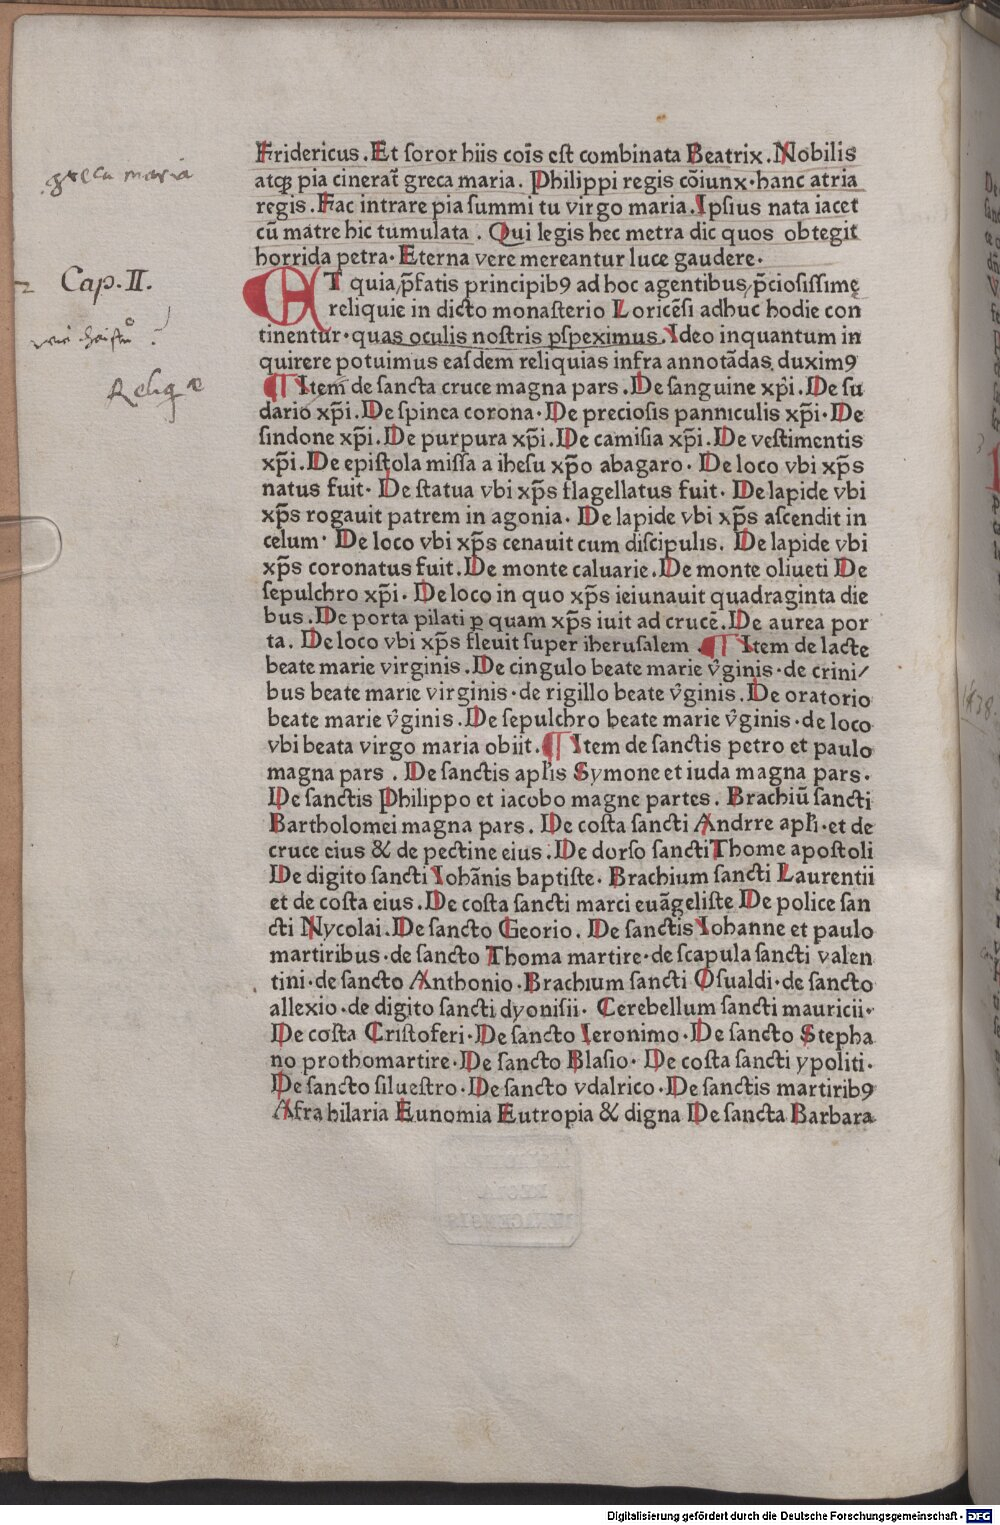 Fridericus. Et soror hiis coīs est combinata Beatrix. Nobilis
atqꝫ pia cinerat̄ greca maria. Philippi regis cōiunx· hanc atria
regis. Fac intrare pia summi tu virgo maria. Ipsius nata iacet
cū matre hic tumulata. Qui legis hec metra dic quos obtegit
horrida petra· Eterna vere mereantur luce gaudere·
ET quia p̄fatis principibꝰ ad hoc agentibus p̄ciosissimę
reliquie in dicto monasterio Loricēsi adhuc hodie con
tinentur· quas oculis nostris ꝑspeximus. Ideo inquantum in
quirere potuimus easdem reliquias infra annotādas duximꝰ
¶ Item de sancta cruce magna pars. De sanguine xp̄i. De su
dario xp̄i. De spinea corona· De preciosis panniculis xp̄i· De
sindone xp̄i. De purpura xp̄i. De camisia xp̄i. De vestimentis
xp̄i. De epistola missa a ihesu xp̄o abagaro· De loco vbi xp̄s
natus fuit· De statua vbi xp̄s flagellatus fuit· De lapide vbi
xp̄s rogauit patrem in agonia· De lapide vbi xp̄s ascendit in
celum· De loco vbi xp̄s cenauit cum discipulis. De lapide vbi
xp̄s coronatus fuit. De monte caluarie. De monte oliueti De
sepulchro xp̄i. De loco in quo xp̄s ieiunauit quadraginta die
bus. De porta pilati ꝑ quam xp̄s iuit ad crucē. De aurea por
ta. De loco vbi xp̄s fleuit super iherusalem. ¶ Item de lacte
beate marie virginis. De cingulo beate marie v̄ginis· de crini/
bus beate marie virginis· de rigillo beate v̄ginis. De oratorio
beate marie v̄ginis. De sepulchro beate marie v̄ginis· de loco
vbi beata virgo maria obiit. ¶ Item de sanctis petro et paulo
magna pars. De sanctis apl̄is Symone et iuda magna pars.
De sanctis Philippo et iacobo magne partes. Brachiū sancti
Bartholomei magna pars. De costa sancti Andrre apl̄i· et de
cruce eius & de pectine eius. De dorso sancti Thome apostoli
De digito sancti Iohānis baptiste· Brachium sancti Laurentii
et de costa eius. De costa sancti marci euāgeliste De police san
cti Nycolai. De sancto Georio. De sanctis Iohanne et paulo
martiribus· de sancto Thoma martire· de scapula sancti valen
tini· de sancto Anthonio. Brachium sancti Osualdi· de sancto
allexio· de digito sancti dyonisii· Cerebellum sancti mauricii·
De costa Cristoferi· De sancto Ieronimo· De sancto Stepha
no prothomartire· De sancto Blasio· De costa sancti ypoliti·
De sancto siluestro· De sancto vdalrico· De sanctis martiribꝰ
Afra hilaria Eunomia Eutropia & digna De sancta Barbara
greca maria
Cap. II.
Reliqꝫ
Digitalisierung gefördert durch die Deutsche Forschungsgemeinschaft - DFG